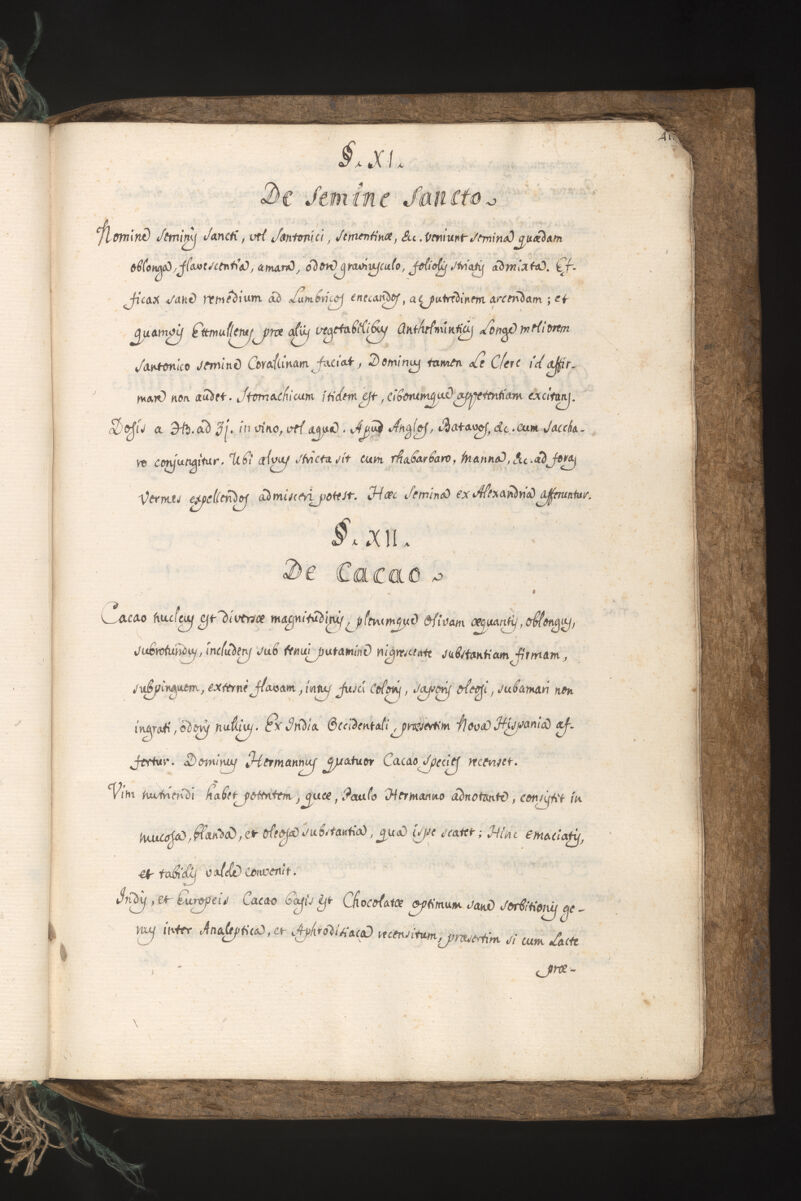 §. XI.
De Semine Sancto
Nomine Seminis Sancti, vel Santonici, Sementinæ, &c. veniunt Semina quædam
oblonga, flavescentia, amara, odore graviusculo, foliolis striatis admixta. Ef-
ficax sane remedium ad Lumbricos enecandos, ac putredinem arcendam; et
quamvis Ettmullerus præ aliis vegetabilibus Anthelminticis Longe meliorem
Santonico semine Corallinam faciat, Dominus tamen Le Clerc id affir-
mare non audet. Stomachicum itidem est, ciborumque appetentiam excitans.
Dosis a ℈ß. ad ʒj. in vino, vel aqua. Apud Anglos, Batavos, &c. cum saccha-
ro conjungitur. Ubi alvus stricta sit cum rhabarbaro, manna, &c. ad foras
Vermes expellendos admisceri potest. Hæc Semina ex Alexandria afferuntur.
§. XII.
De Cacao
Cacao nucleus est diversæ magnitudinis, plerumque olivam æquantis, oblongus,
subrotundus, includens sub tenui putamine nigrescente substantiam firmam,
subpinguem, externe flavam, intus fusci coloris, saporis oleosi, subamari non
ingrati, odoris nullius. Ex India Occidentali, præsertim Nova Hispania af-
fertur. Dominus Hermannus quatuor Cacao species recenset.
Vim nutriendi habet potentem, quæ, Paulo Hermanno adnotante, consistit in
mucosa, blanda, et oleosa substantia, qua ispe scatet; Hinc emaciatis,
et tabidis valde convenit.
Indis, et Europeis Cacao basis est Chocolatæ optimum sane sorbitionis ge-
nus inter Analeptica, et Aphrodisiaca recensitum, præsertim si cum Lacte
præ-